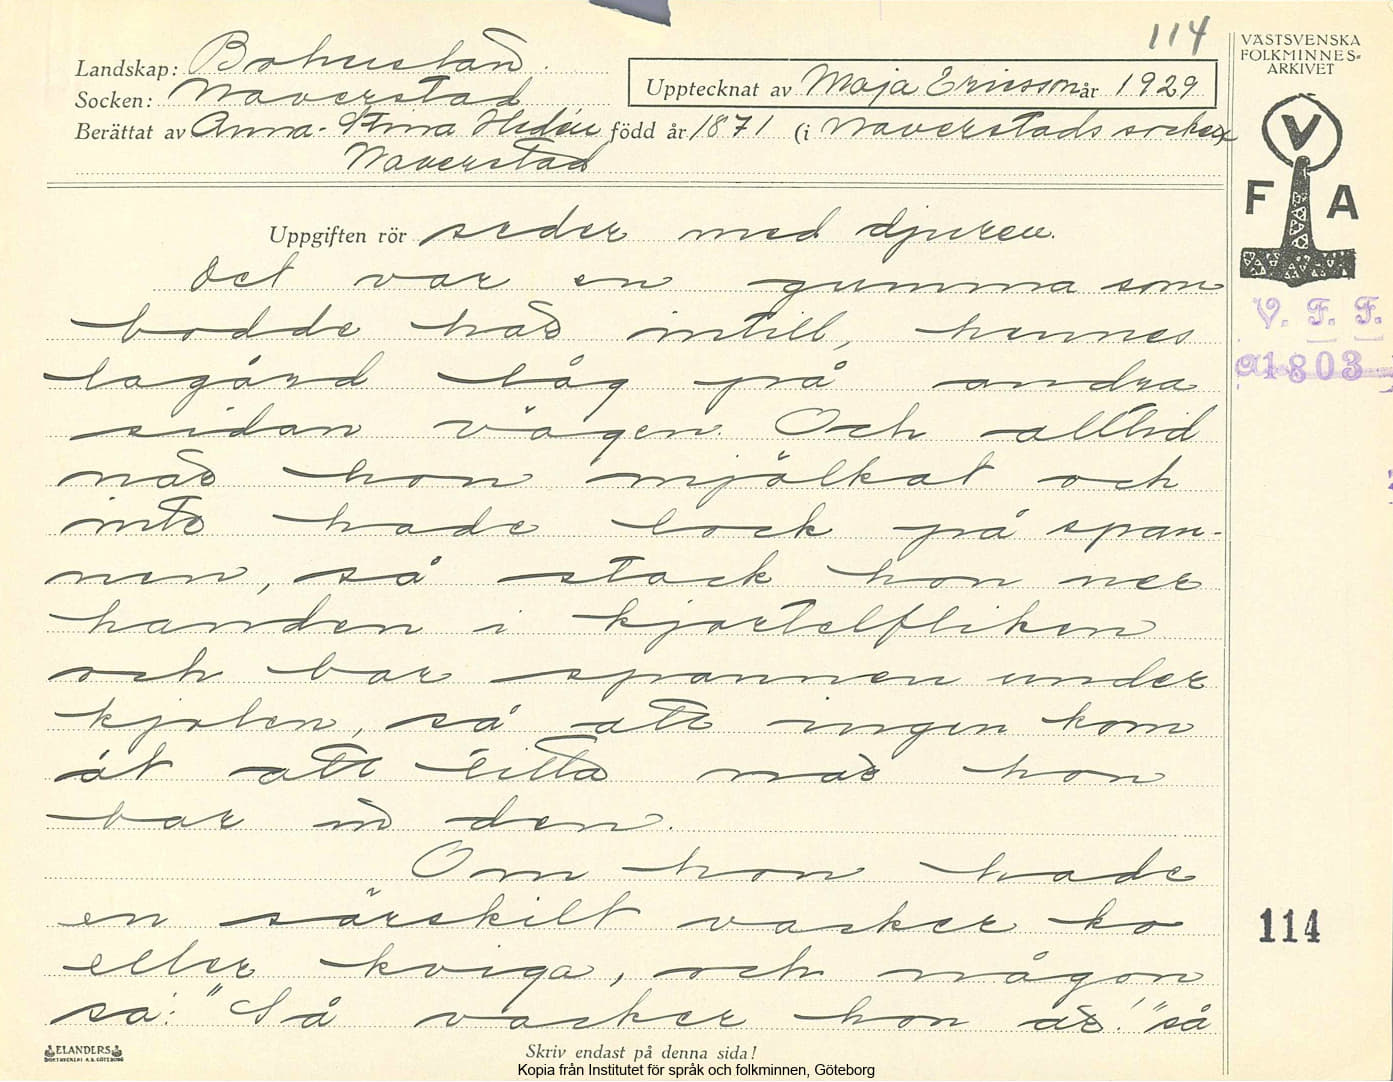 114
Landskap: Bohuslän.
Socken: Naverstad
Upptecknat av Maja Ericsson år 1929
Berättat av Anna-Stina Hedén född år 1871 (i Naverstads socken
Naverstad
Uppgiften rör seder med djuren.
Det var en gumma som
bodde här intill, hennes
lagård låg på andra
sidan vägen. Och alltid
när hon mjölkat och
inte hade lock på span-
nen, så stack hon ner
handen i kjortelfliken
och bar spannen under
kjolen, så att ingen kom
åt att titta när hon
bar in den.
Om hon hade
en särskilt vacker ko
eller kviga, och någon
sa: "Så vacker hon är!" så
ELANDERS
BOKTRYCKERI A.B. GÖTEBORG
Skriv endast på denna sida!
Kopia från Institutet för språk och folkminnen, Göteborg
VÄSTSVENSKA
FOLKMINNES=
ARKIVET
V
F A
V. F. F.
1803
114